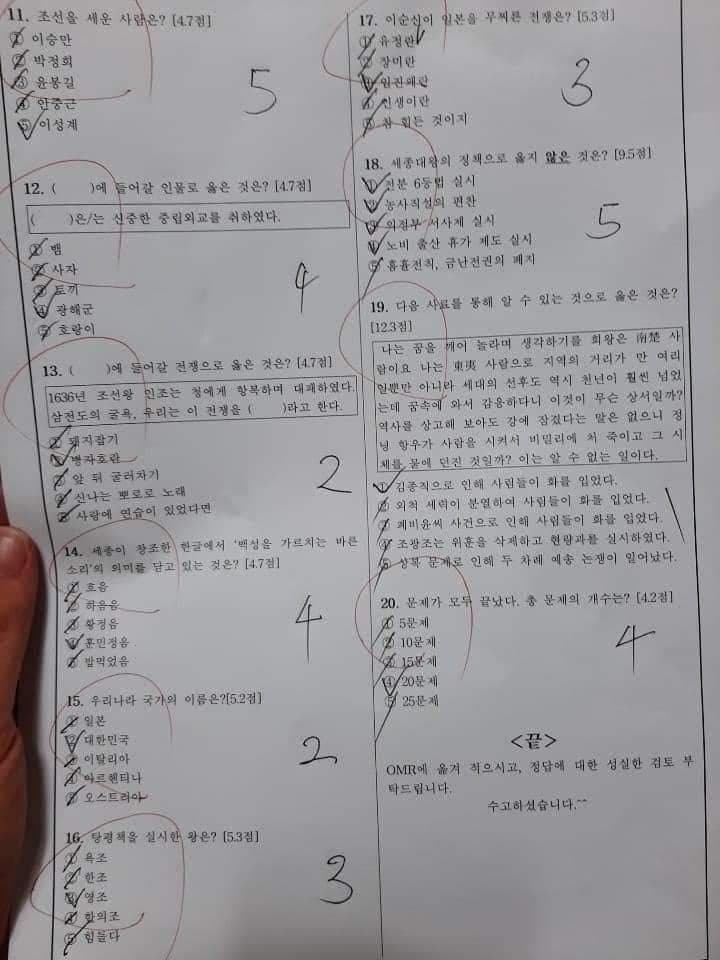 11. 조선을 세운 사람은? [4.7점]
① 이승만
② 박정희
③ 윤봉길
④ 안중근
⑤ 이성계
5
12. (    )에 들어갈 인물로 옳은 것은? [4.7점]
(    )은/는 신중한 중립외교를 취하였다.
① 뱀
② 사자
③ 토끼
④ 광해군
⑤ 호랑이
4
13. (    )에 들어갈 전쟁으로 옳은 것은? [4.7점]
1636년 조선왕 인조는 청에게 항복하며 대패하였다.
삼전도의 굴욕, 우리는 이 전쟁을 (    )라고 한다.
① 돼지잡기
② 병자호란
③ 앞 뒤 굴러차기
④ 신나는 뽀로로 노래
⑤ 사랑에 연습이 있었다면
2
14. 세종이 창조한 한글에서 '백성을 가르치는 바른
소리'의 의미를 담고 있는 것은? [4.7점]
① 흐음
② 하음음
③ 황정음
④ 훈민정음
⑤ 밥먹었음
4
15. 우리나라 국가의 이름은?[5.2점]
① 일본
② 대한민국
③ 이탈리아
④ 아르헨티나
⑤ 오스트리아
2
16. 탕평책을 실시한 왕은? [5.3점]
① 욕조
② 한조
③ 영조
④ 합의조
⑤ 힘들다
3
17. 이순신이 일본을 무찌른 전쟁은? [5.3점]
① 유정란
② 장미란
③ 임진왜란
④ 인생이란
⑤ 참 힘든 것이지
3
18. 세종대왕의 정책으로 옳지 않은 것은? [9.5점]
① 전분 6등법 실시
② 농사직설의 편찬
③ 의정부 서사제 실시
④ 노비 출산 휴가 제도 실시
⑤ 흠휼전칙, 금난전권의 폐지
5
19. 다음 사료를 통해 알 수 있는 것으로 옳은 것은?
[12.3점]
나는 꿈을 깨어 놀라며 생각하기를 회왕은 南楚 사
람이요 나는 東夷 사람으로 지역의 거리가 만 여리
일뿐만 아니라 세대의 선후도 역시 천년이 훨씬 넘었
는데 꿈속에 와서 감응하다니 이것이 무슨 상서일까?
역사를 상고해 보아도 강에 잠겼다는 말은 없으니 정
녕 항우가 사람을 시켜서 비밀리에 쳐 죽이고 그 시
체를 물에 던진 것일까? 이는 알 수 없는 일이다.
① 김종직으로 인해 사림들이 화를 입었다.
② 외척 세력이 분열하여 사림들이 화를 입었다.
③ 폐비윤씨 사건으로 인해 사림들이 화를 입었다.
④ 조광조는 위훈을 삭제하고 현량과를 실시하였다.
⑤ 상복 문제로 인해 두 차례 예송 논쟁이 일어났다.
20. 문제가 모두 끝났다. 총 문제의 개수는? [4.2점]
① 5문제
② 10문제
③ 15문제
④ 20문제
⑤ 25문제
4
<끝>
OMR에 옮겨 적으시고, 정답에 대한 성실한 검토 부
탁드립니다.
수고하셨습니다.^^